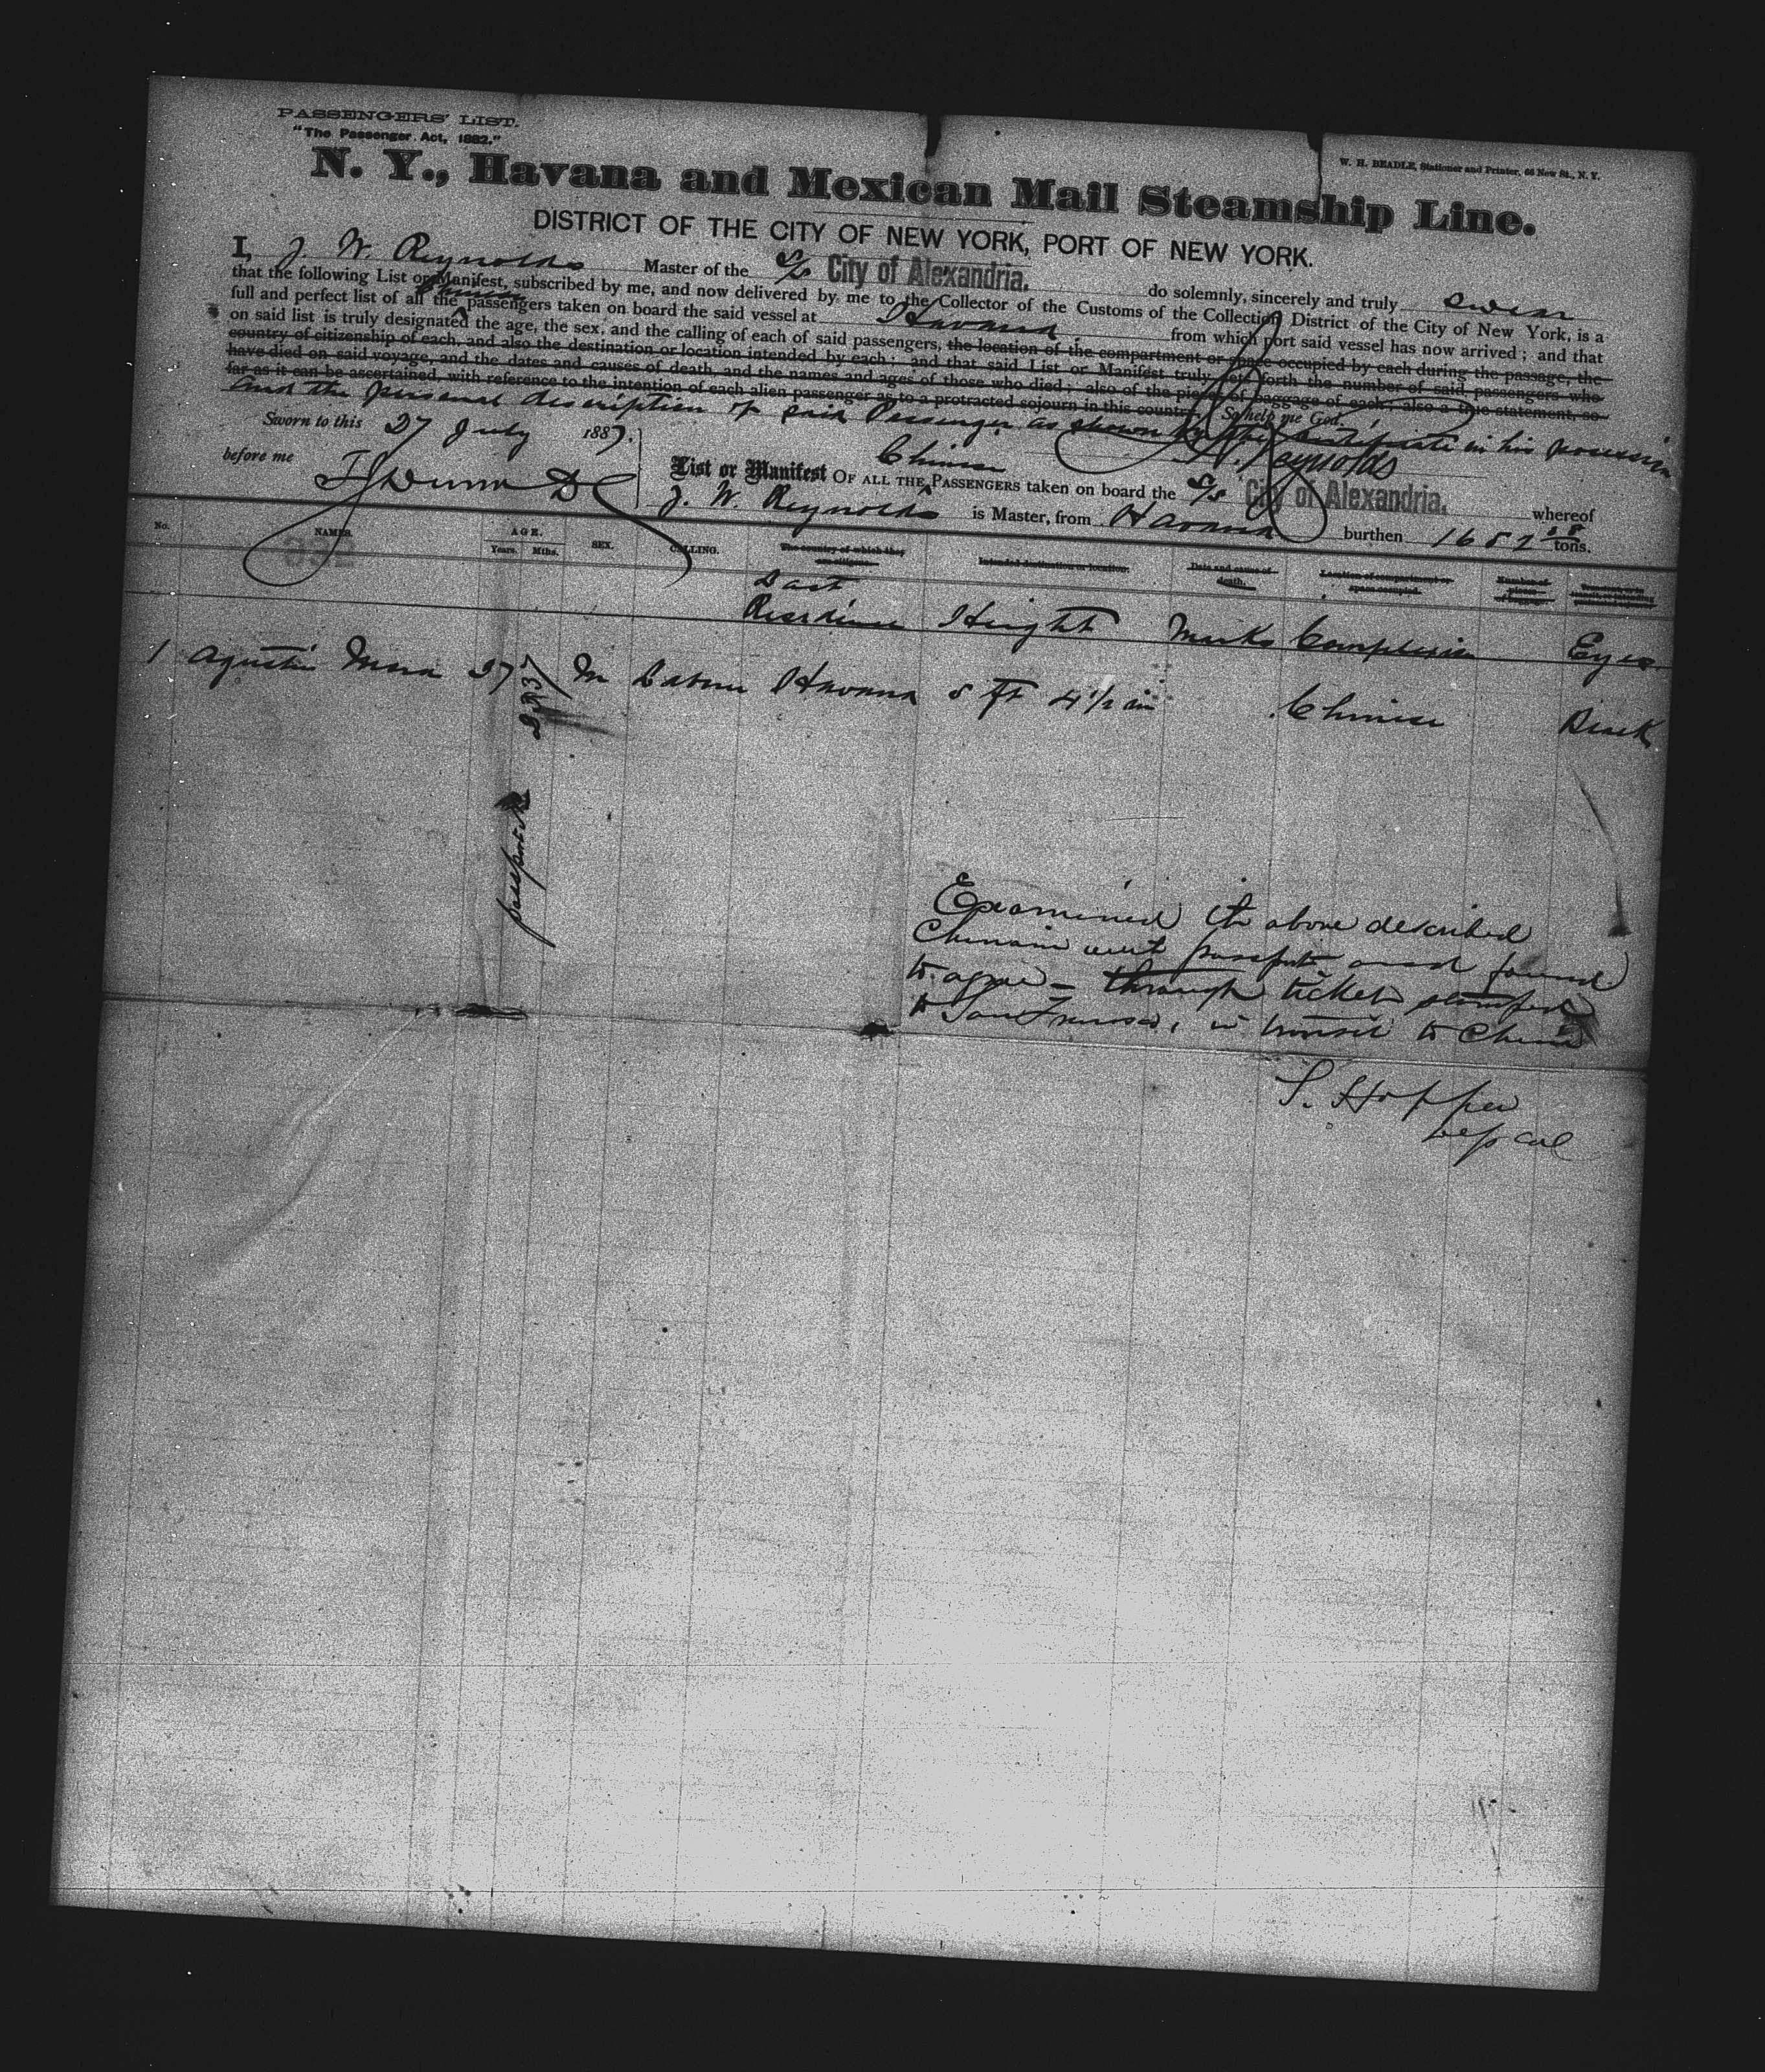 PASSENGERS' LIST.
"The Passenger Act, 1882."
W. H. BEADLE, Stationer and Printer, 66 New St., N. Y.
N. Y., Havana and Mexican Mail Steamship Line.
DISTRICT OF THE CITY OF NEW YORK, PORT OF NEW YORK.
I, J. W. Reynolds Master of the S/S City of Alexandria. do solemnly, sincerely and truly swear
that the following List or Manifest, subscribed by me, and now delivered by me to the Collector of the Customs of the Collection District of the City of New York, is a
full and perfect list of all the Chinese passengers taken on board the said vessel at Havana from which port said vessel has now arrived; and that
on said list is truly designated the age, the sex, and the calling of each of said passengers, the location of the compartment or space occupied by each during the passage, the
country of citizenship of each, and also the destination or location intended by each; and that said List or Manifest truly sets forth the number of said passengers who
have died on said voyage, and the dates and causes of death, and the names and ages of those who died; also of the pieces of baggage of each; also a true statement, so
far as it can be ascertained, with reference to the intention of each alien passenger as to a protracted sojourn in this country. So help me God.
and the personal description of said Passenger as shown by the Certificate in his possession
Sworn to this 27 July 1887.
J. W. Reynolds
before me
Chinese
List or Manifest OF ALL THE PASSENGERS taken on board the S/S City of Alexandria. whereof
J. W. Reynolds is Master, from Havana burthen tons.
No. NAMES. AGE. Years. Mths. SEX. CALLING. The country of which they are citizens. Intended destination or location. Date and cause of death. Location of compartment or space occupied. Number of pieces of baggage.
Last
Residence Height Marks Complexion Eyes
1 Agustin 37 M Labor Havana 5 ft 4 1/2 in Chinese Black
passport No
Examined the above described
Chinaman with passport and found
to agree - through ticket stamped
to San Francisco, in transit to China
S. Hopper
Dep Col